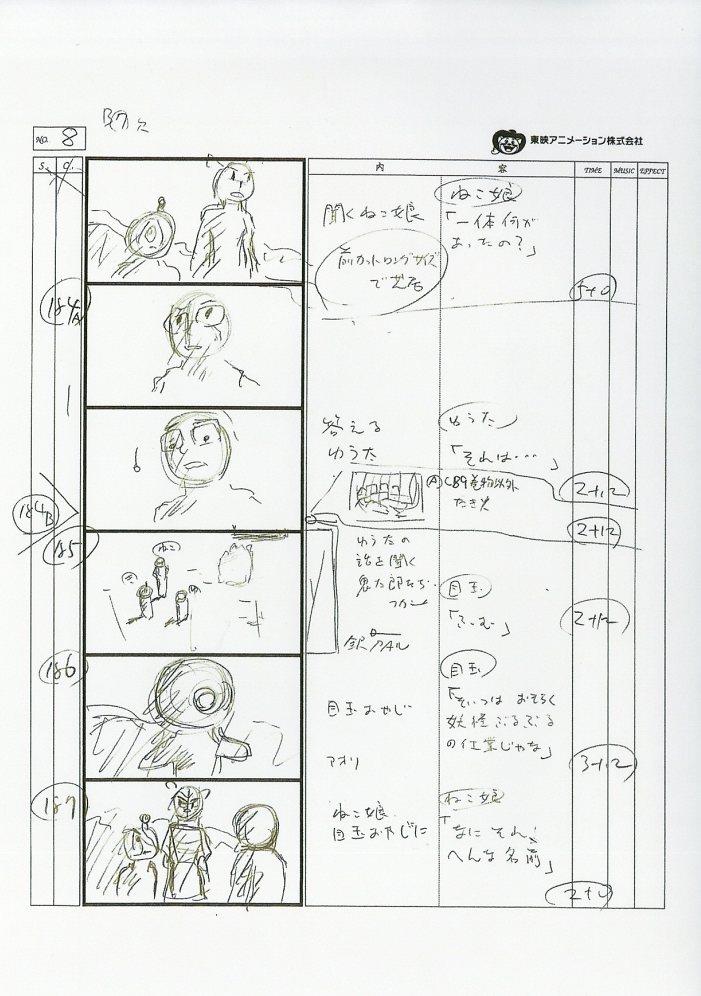 NO. 8
東映アニメーション株式会社
S. C. 内 容 TIME MUSIC EFFECT
聞くねこ娘
ねこ娘
「一体何が
あったの？」
前カットロングサイズ
で芝居
5+0
184A
答える
ゆうた
ゆうた
「それは…」
2+12
184B
Ⓐ C89巻物以外
たき火
2+12
185
ねこ
ゆうたの
話を聞く
鬼太郎たち
目玉
「ふーむ」
2+12
186
目玉おやじ
アオリ
目玉
「そいつは おそらく
妖怪ぶるぶる
の仕業じゃな」
3+12
187
ねこ娘
目玉おやじに
ねこ娘
「なに それ！
へんな名前」
2+0